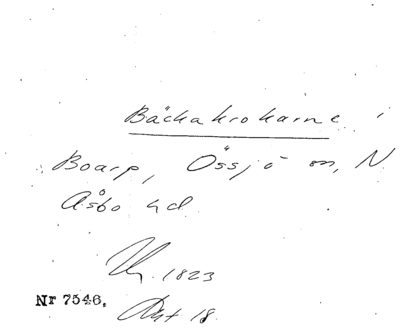 Bäckakrokarne
Boarp, Össjö sn, N
Åsbo hd
1823
Nr 7546.
Akt 18.